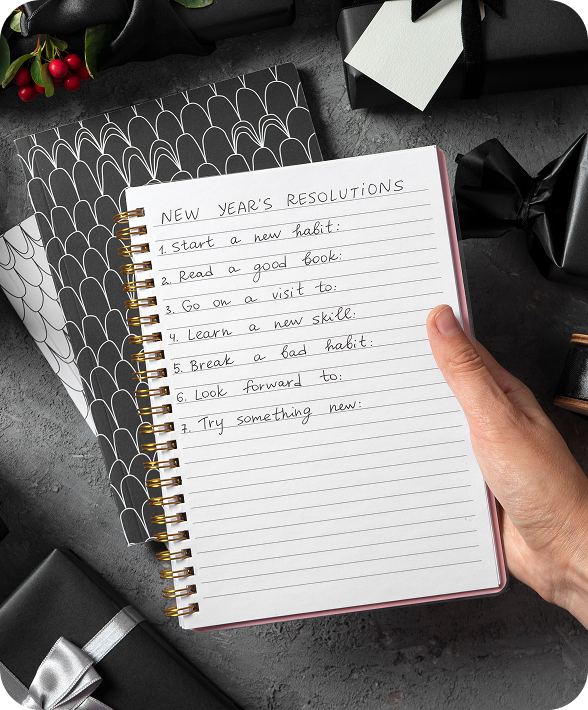 NEW YEAR'S RESOLUTIONS
1. Start a new habit:
2. Read a good book:
3. Go on a visit to:
4. Learn a new skill:
5. Break a bad habit:
6. Look forward to:
7. Try something new: